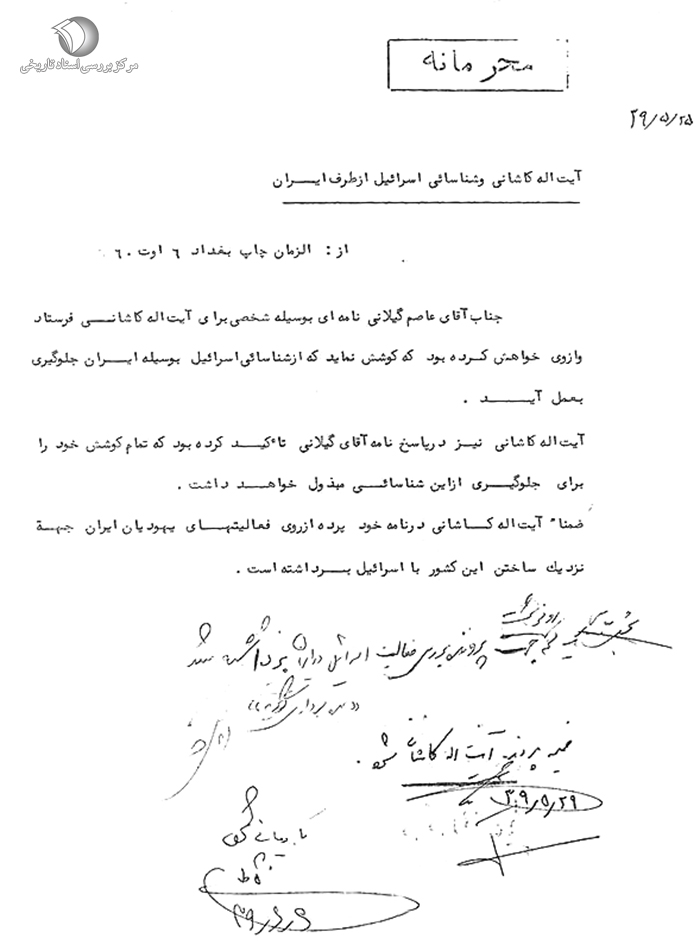 مرکز بررسی اسناد تاریخی
محرمانه
۳۹/۵/۲۵
آیت اله کاشانی وشناسائی اسرائیل ازطرف ایـــران
از : الزمان چاپ بغداد ۶ اوت ۶۰
جناب آقای عاصم گیلانی نامه ای بوسیله شخصی برای آیت اله کاشانـــی فرستاد
وازوی خواهش کرده بود که کوشش نماید که ازشناسائی اسرائیل بوسیله ایــران جلوگیری
بعمل آیـــد .
آیت اله کاشانی نیـز درپاسخ نامه آقای گیلانی تاءکیـد کرده بود که تمام کوشش خود را
برای جلوگیــری ازاین شناسائـــی مبذول خواهــد داشت .
ضمناً آیت اله کــاشانی درنامه خود پرده ازروی فعالیتهــای یهودیان ایران جهة
نزدیك ساختن این کشور با اسرائیل بــرداشته است .
پرونده فعالیت اسرائیل در ایران
ضمیمه پرونده آیت اله کاشانی شود .
۳۹/۵/۲۹
بایگانی شود
۳۹/۶/۶